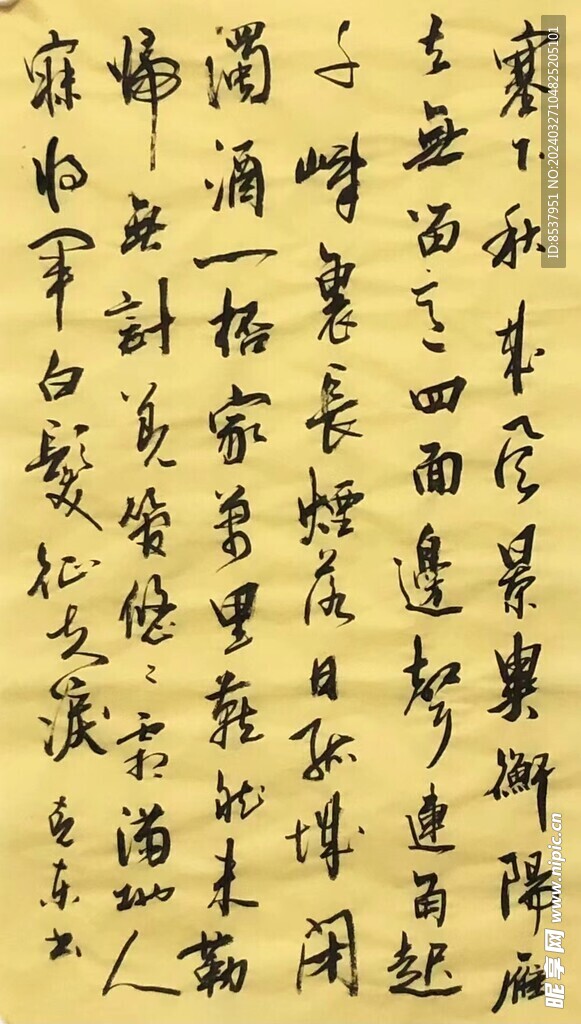 塞下秋来风景異衡陽雁
去無留意四面邊聲連角起
千嶂裏長煙落日孤城闭
濁酒一杯家萬里燕然未勒
歸無計羌管悠悠霜满地人
寐将軍白髮征夫淚 克东书
ID:8537951 NO:20240327104825205101
昵享网 www.nipic.cn